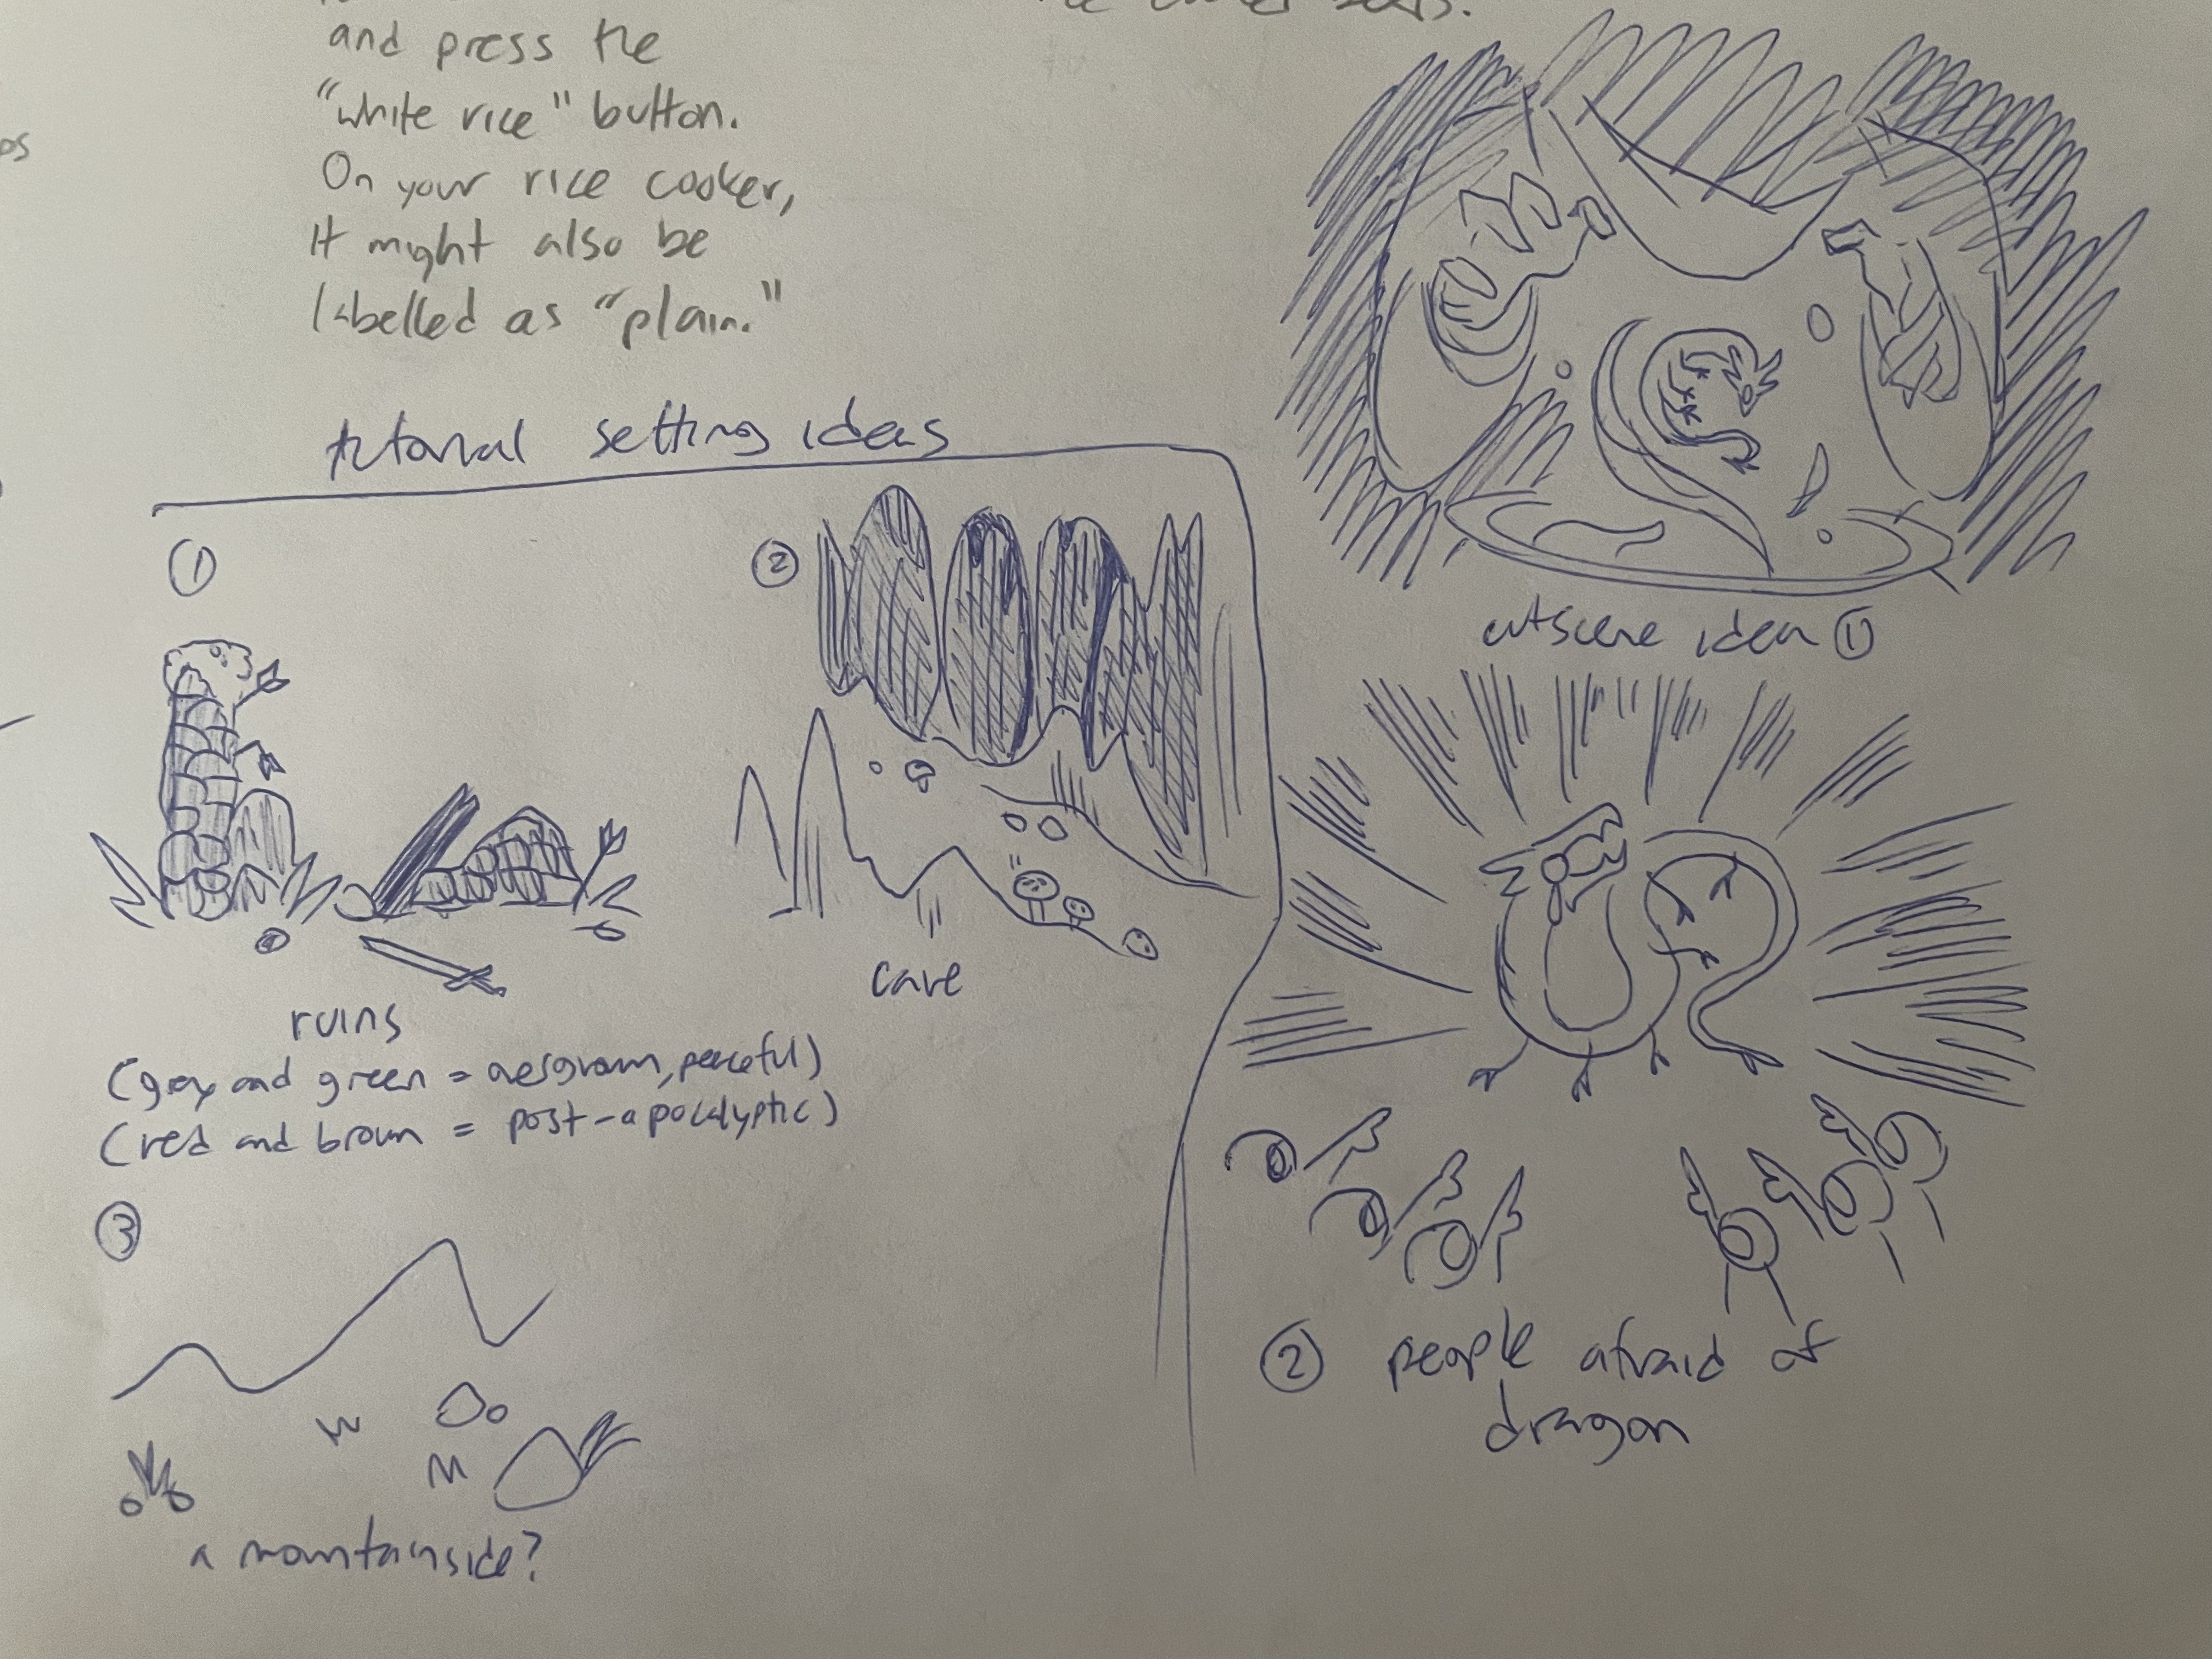 and press the
"white rice" button.
On your rice cooker,
It might also be
labelled as "plain."
tutorial setting ideas
①
②
ruins
(grey and green = overgrown, peaceful)
(red and brown = post-apocalyptic)
cave
③
a mountainside?
cutscene idea ①
② people afraid of
dragon